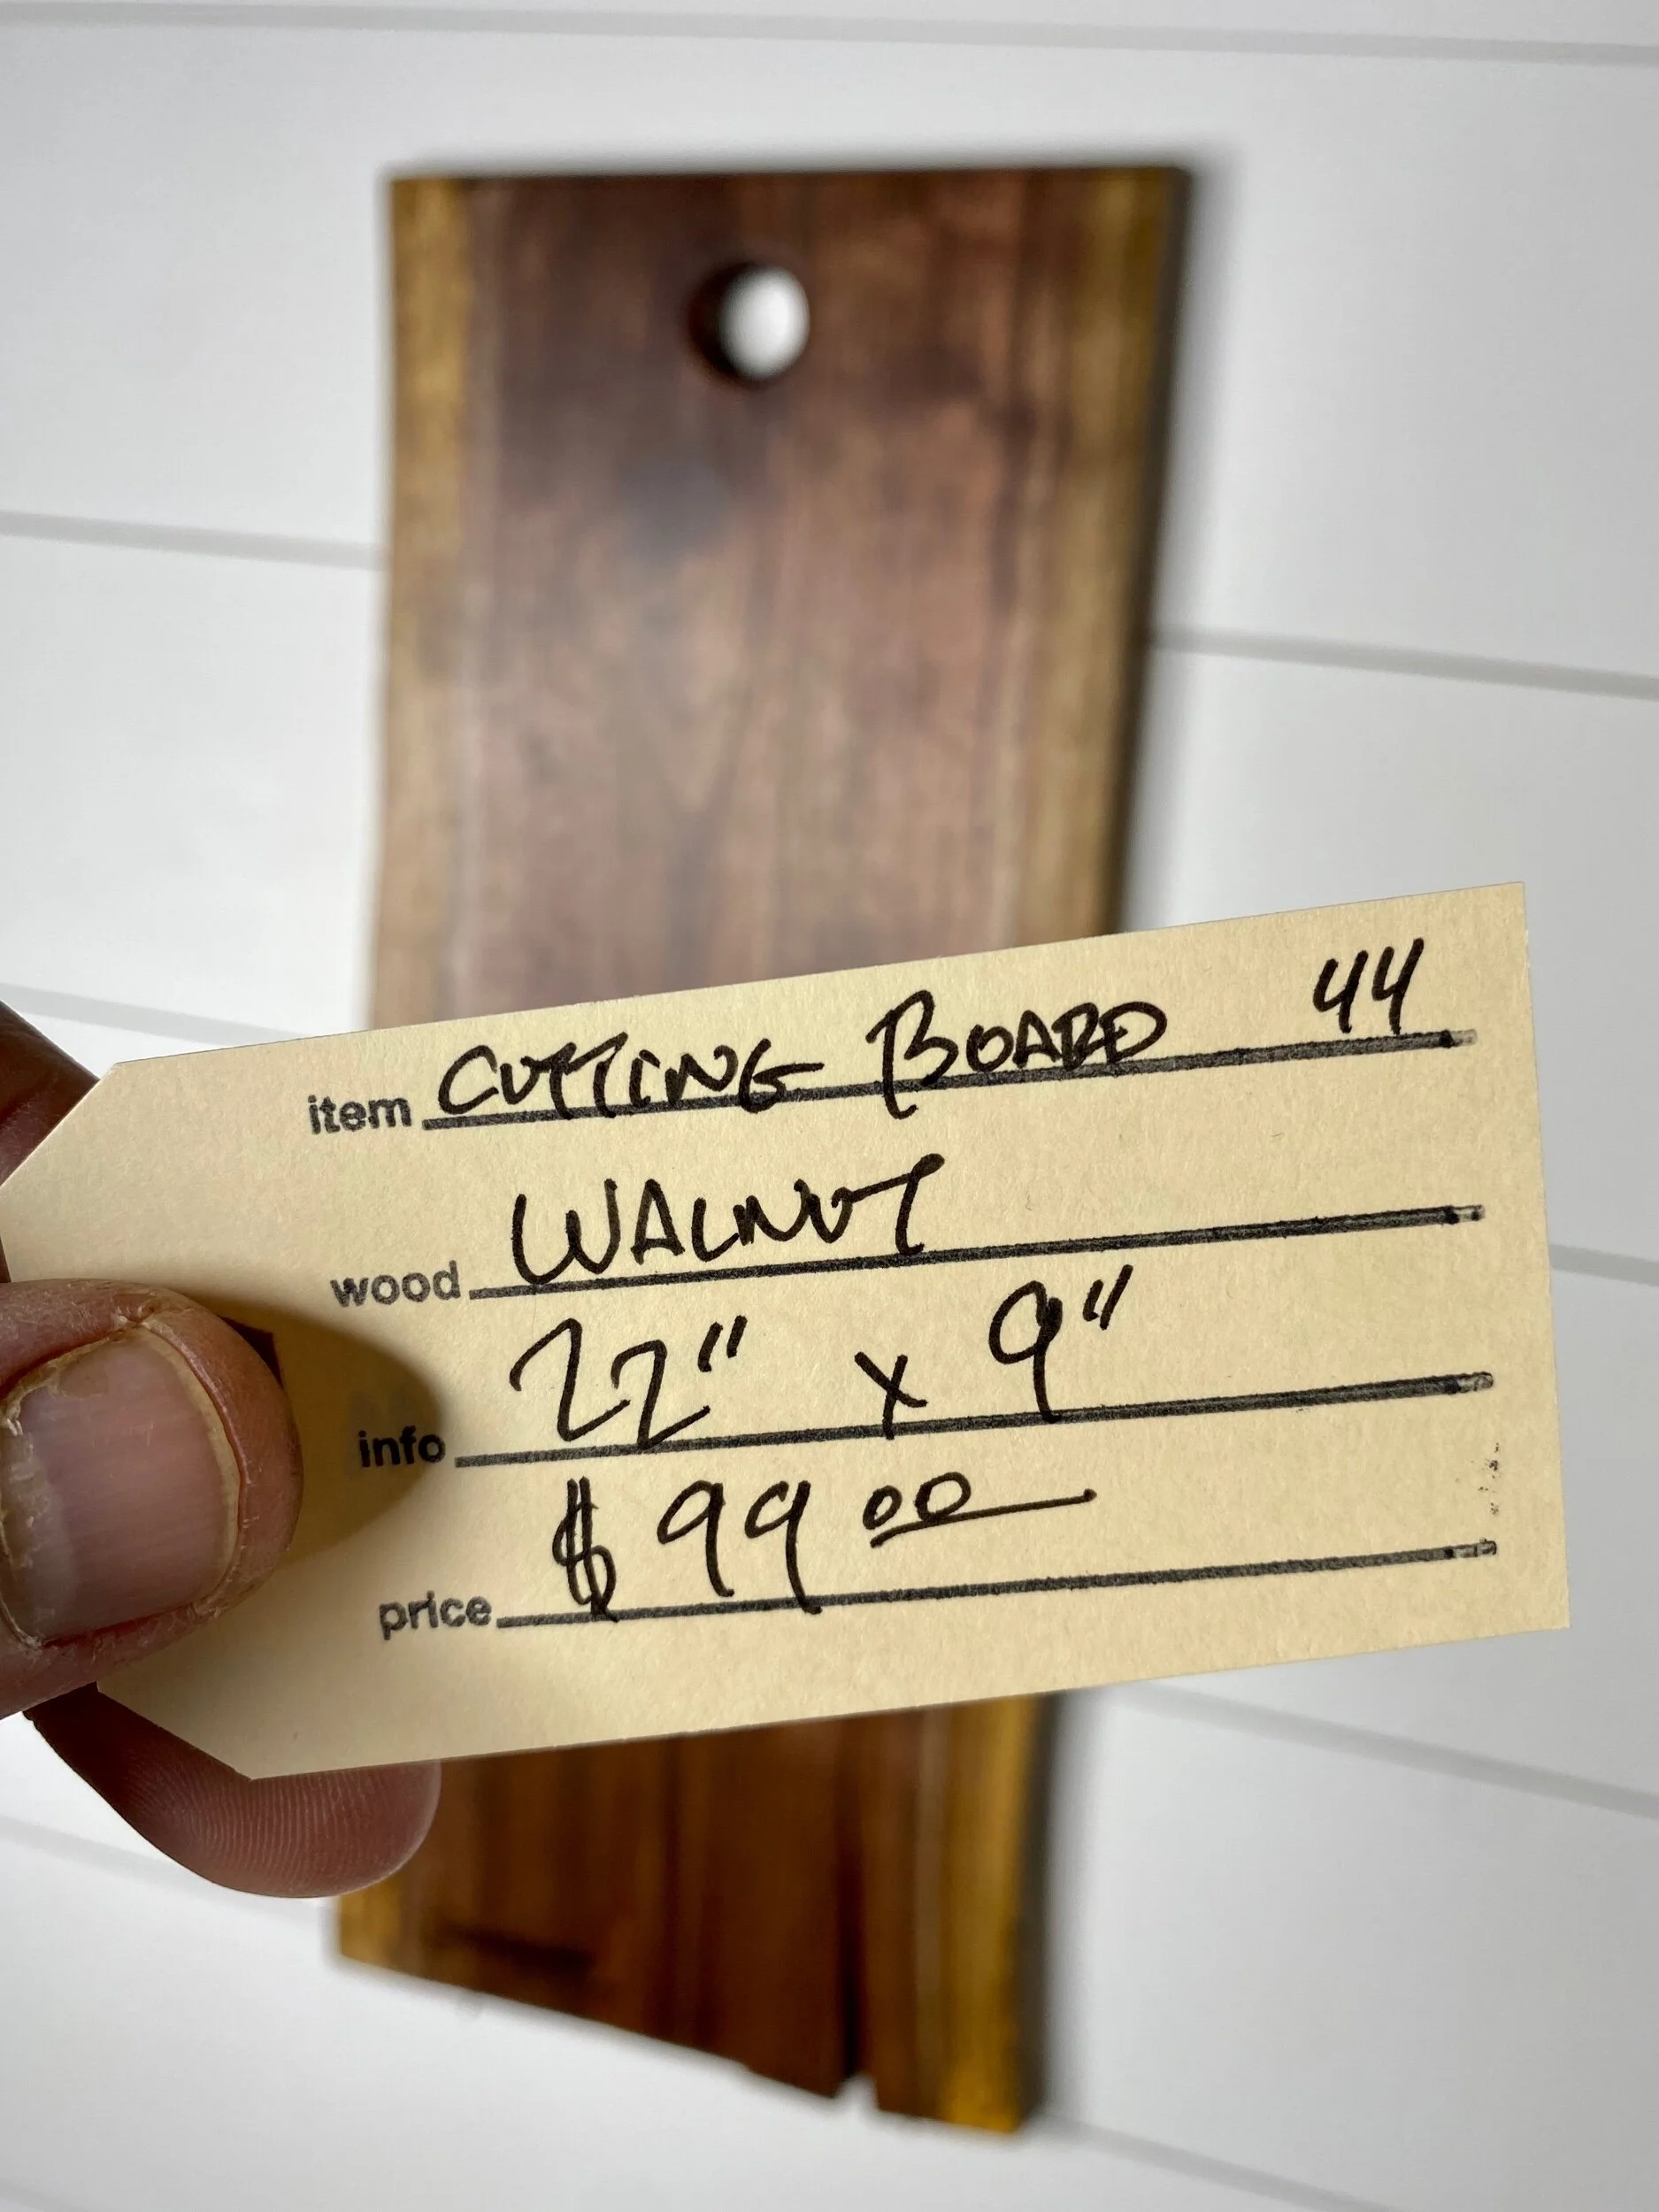 item CUTTING BOARD 44
wood WALNUT
info 22" x 9"
price $99 00